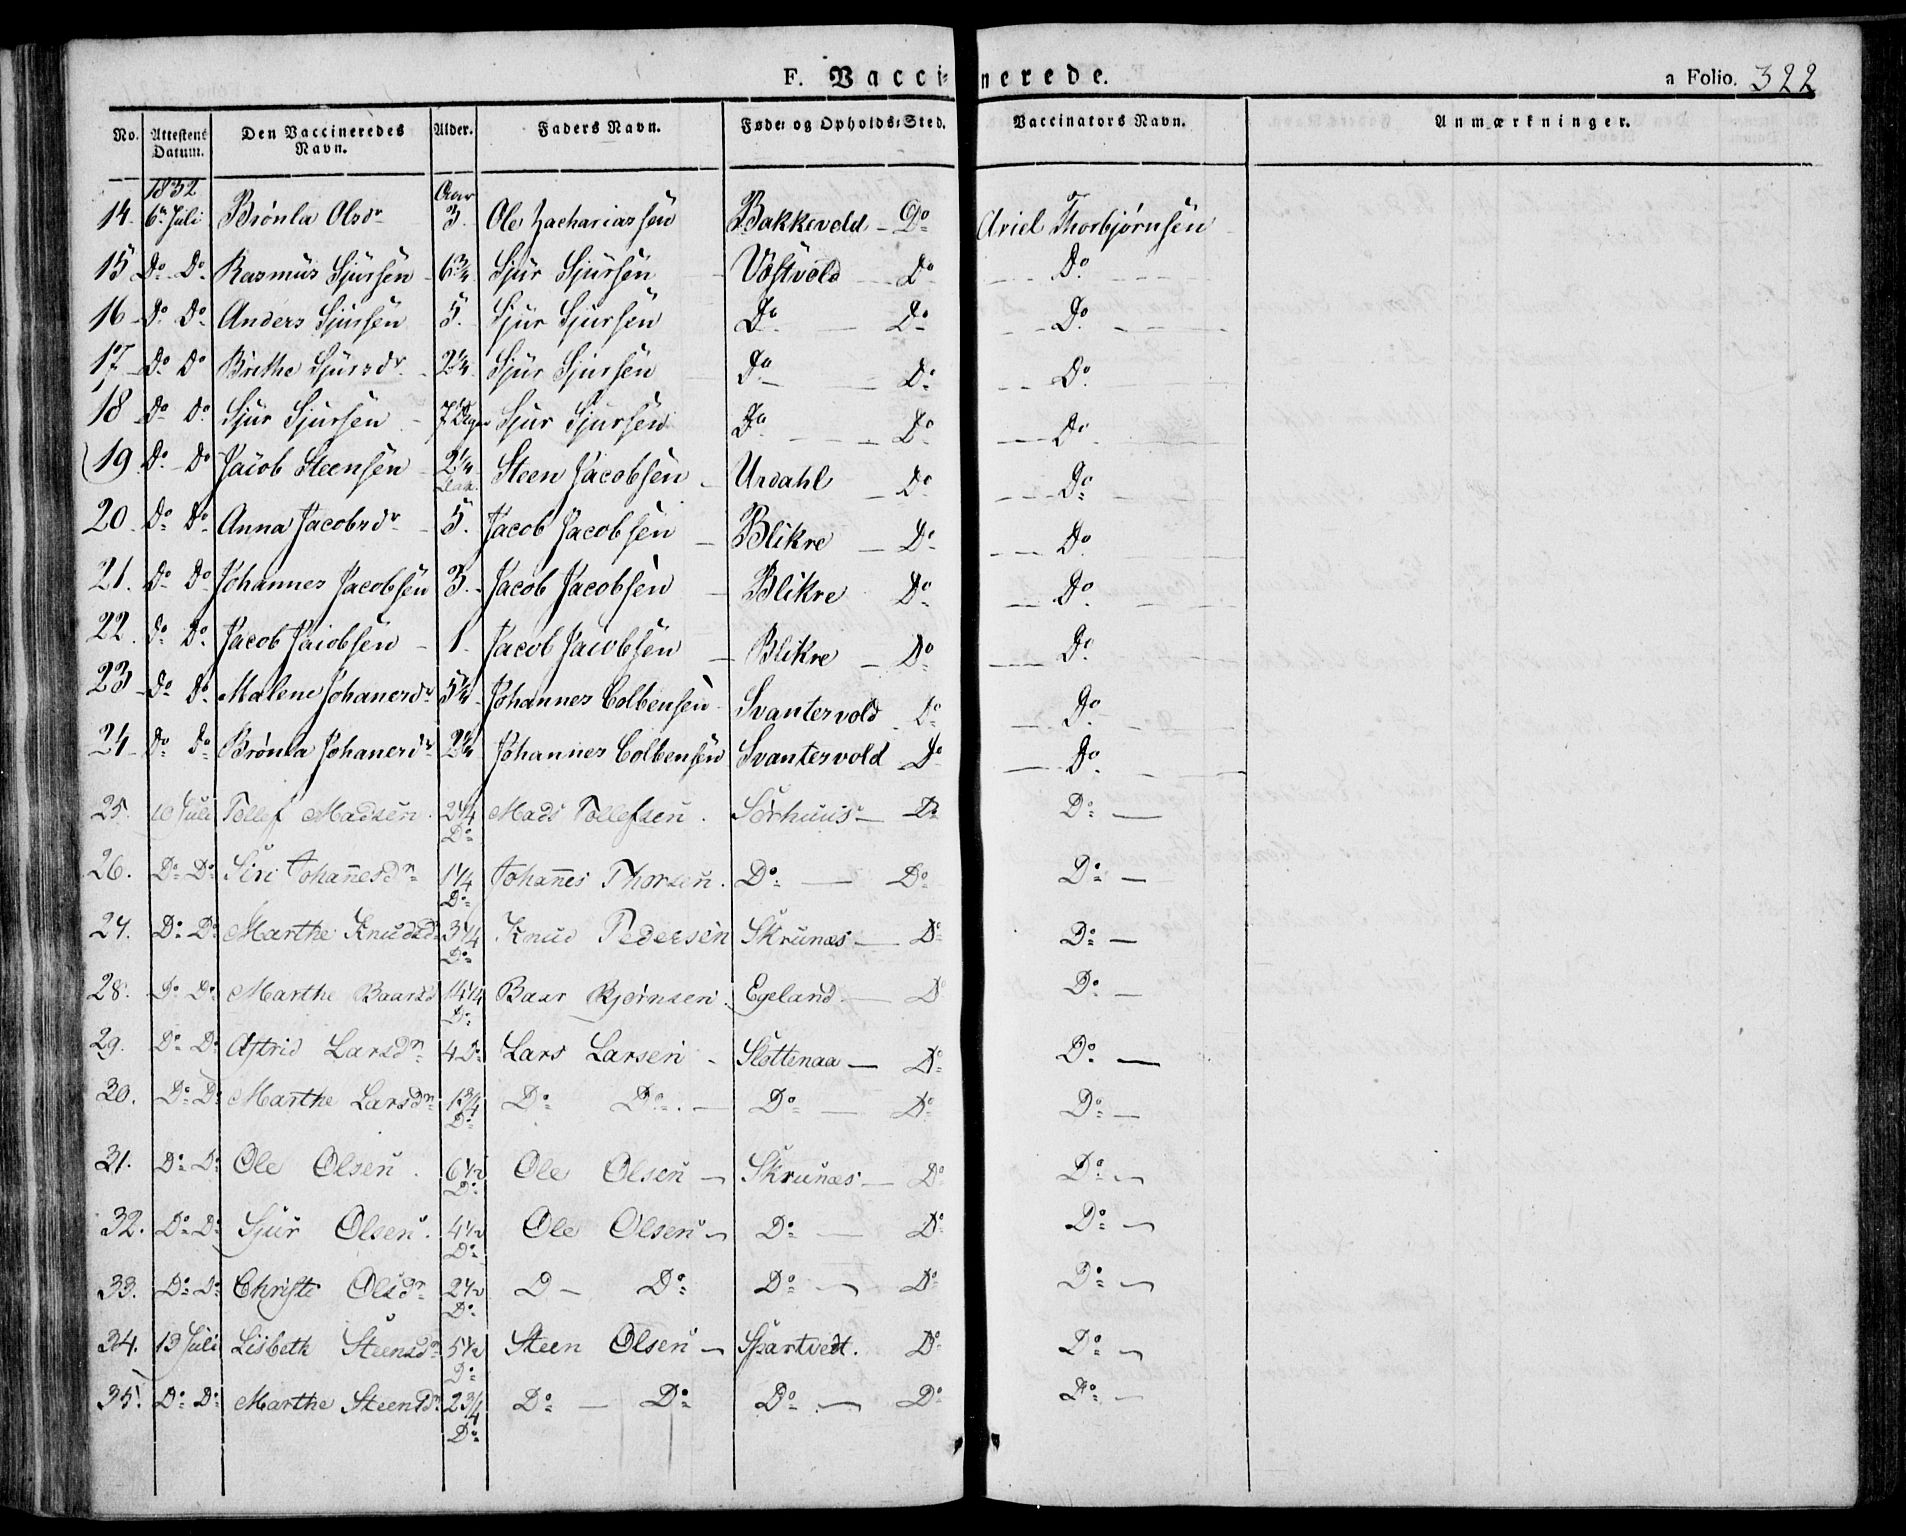 F. Vaccinerede. a Folio. 322
No. Attestens Datum. Den Vaccineredes Navn. Alder. Faders Navn. Føde- og Opholds-Sted. Vaccinators Navn. Anmærkninger.
1832 Aar
14. 6te Juli Brønla Olsdr 3. Ole Zachariassen Bakkevold - Do Ariel Thorbjørnsen
15 Do Do Rasmus Sjursen 6 3/4 Sjur Sjursen Do Do
16 Do Do Anders Sjursen 5. Sjur Sjursen Do Do Do
17 Do Do Brithe Sjursdr 2 1/4 Sjur Sjursen Do Do Do
18 Do Do Sjur Sjursen 7 Dage Sjur Sjursen Do Do Do
19 Do Do Jacob Steensen 2 1/4 Steen Jacobsen Urdahl Do Do
20 Do Do Anna Jacobsdr 5. Jacob Jacobsen Blikre Do Do
21. Do Do Johannes Jacobsen 3. Jacob Jacobsen Blikre Do Do
22. Do Do Jacob Jacobsen 1. Jacob Jacobsen Blikre Do Do
23 Do Do Malene Johanesdr 5 1/4 Johannes Colbensen Svantesvold Do Do
24 Do Do Brønla Johanesdr 2 1/4 Johannes Colbensen Svantesvold Do Do
25. 10 Juli Tollef Madsen. 2 1/4 Do Mads Tollefsen. Sørhuus Do Do
26. Do Do Siri Johanesdr 1 1/4 Do Johanes Thorsen. Do Do Do
27. Do Do Marthe Knudsd 3 1/4 Do Knud Pedersen Skrunæs Do Do
28. Do Do Marthe Baarsd Do Baar Bjørnsen. Egeland Do Do
29. Do Do Astrid Larsdr 4 Do Lars Larsen Slottenaa Do Do
30. Do Do Marthe Larsdr 1 3/4 Do Do Do Do Do Do
31. Do Do Ole Olsen. 6 1/2 Do Ole Olsen Skrunæs Do Do
32. Do Do Sjur Olsen. 4 1/2 Do Ole Olsen Do Do Do
33. Do Do Christi Olsdr 2 1/2 Do D Do Do Do Do
34. 13 Juli Lisbeth Steensdr 5 1/2 Do Steen Olsen Spartvedt. Do Do
35. Do Do Marthe Steensdr 2 3/4 Do Do Do Do Do Do